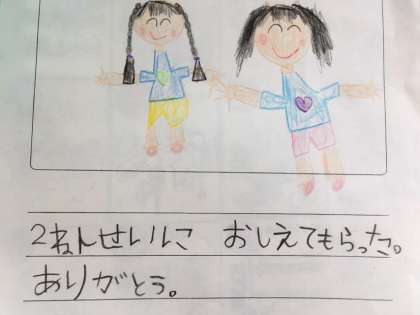 2ねんせいに おしえてもらった。
ありがとう。